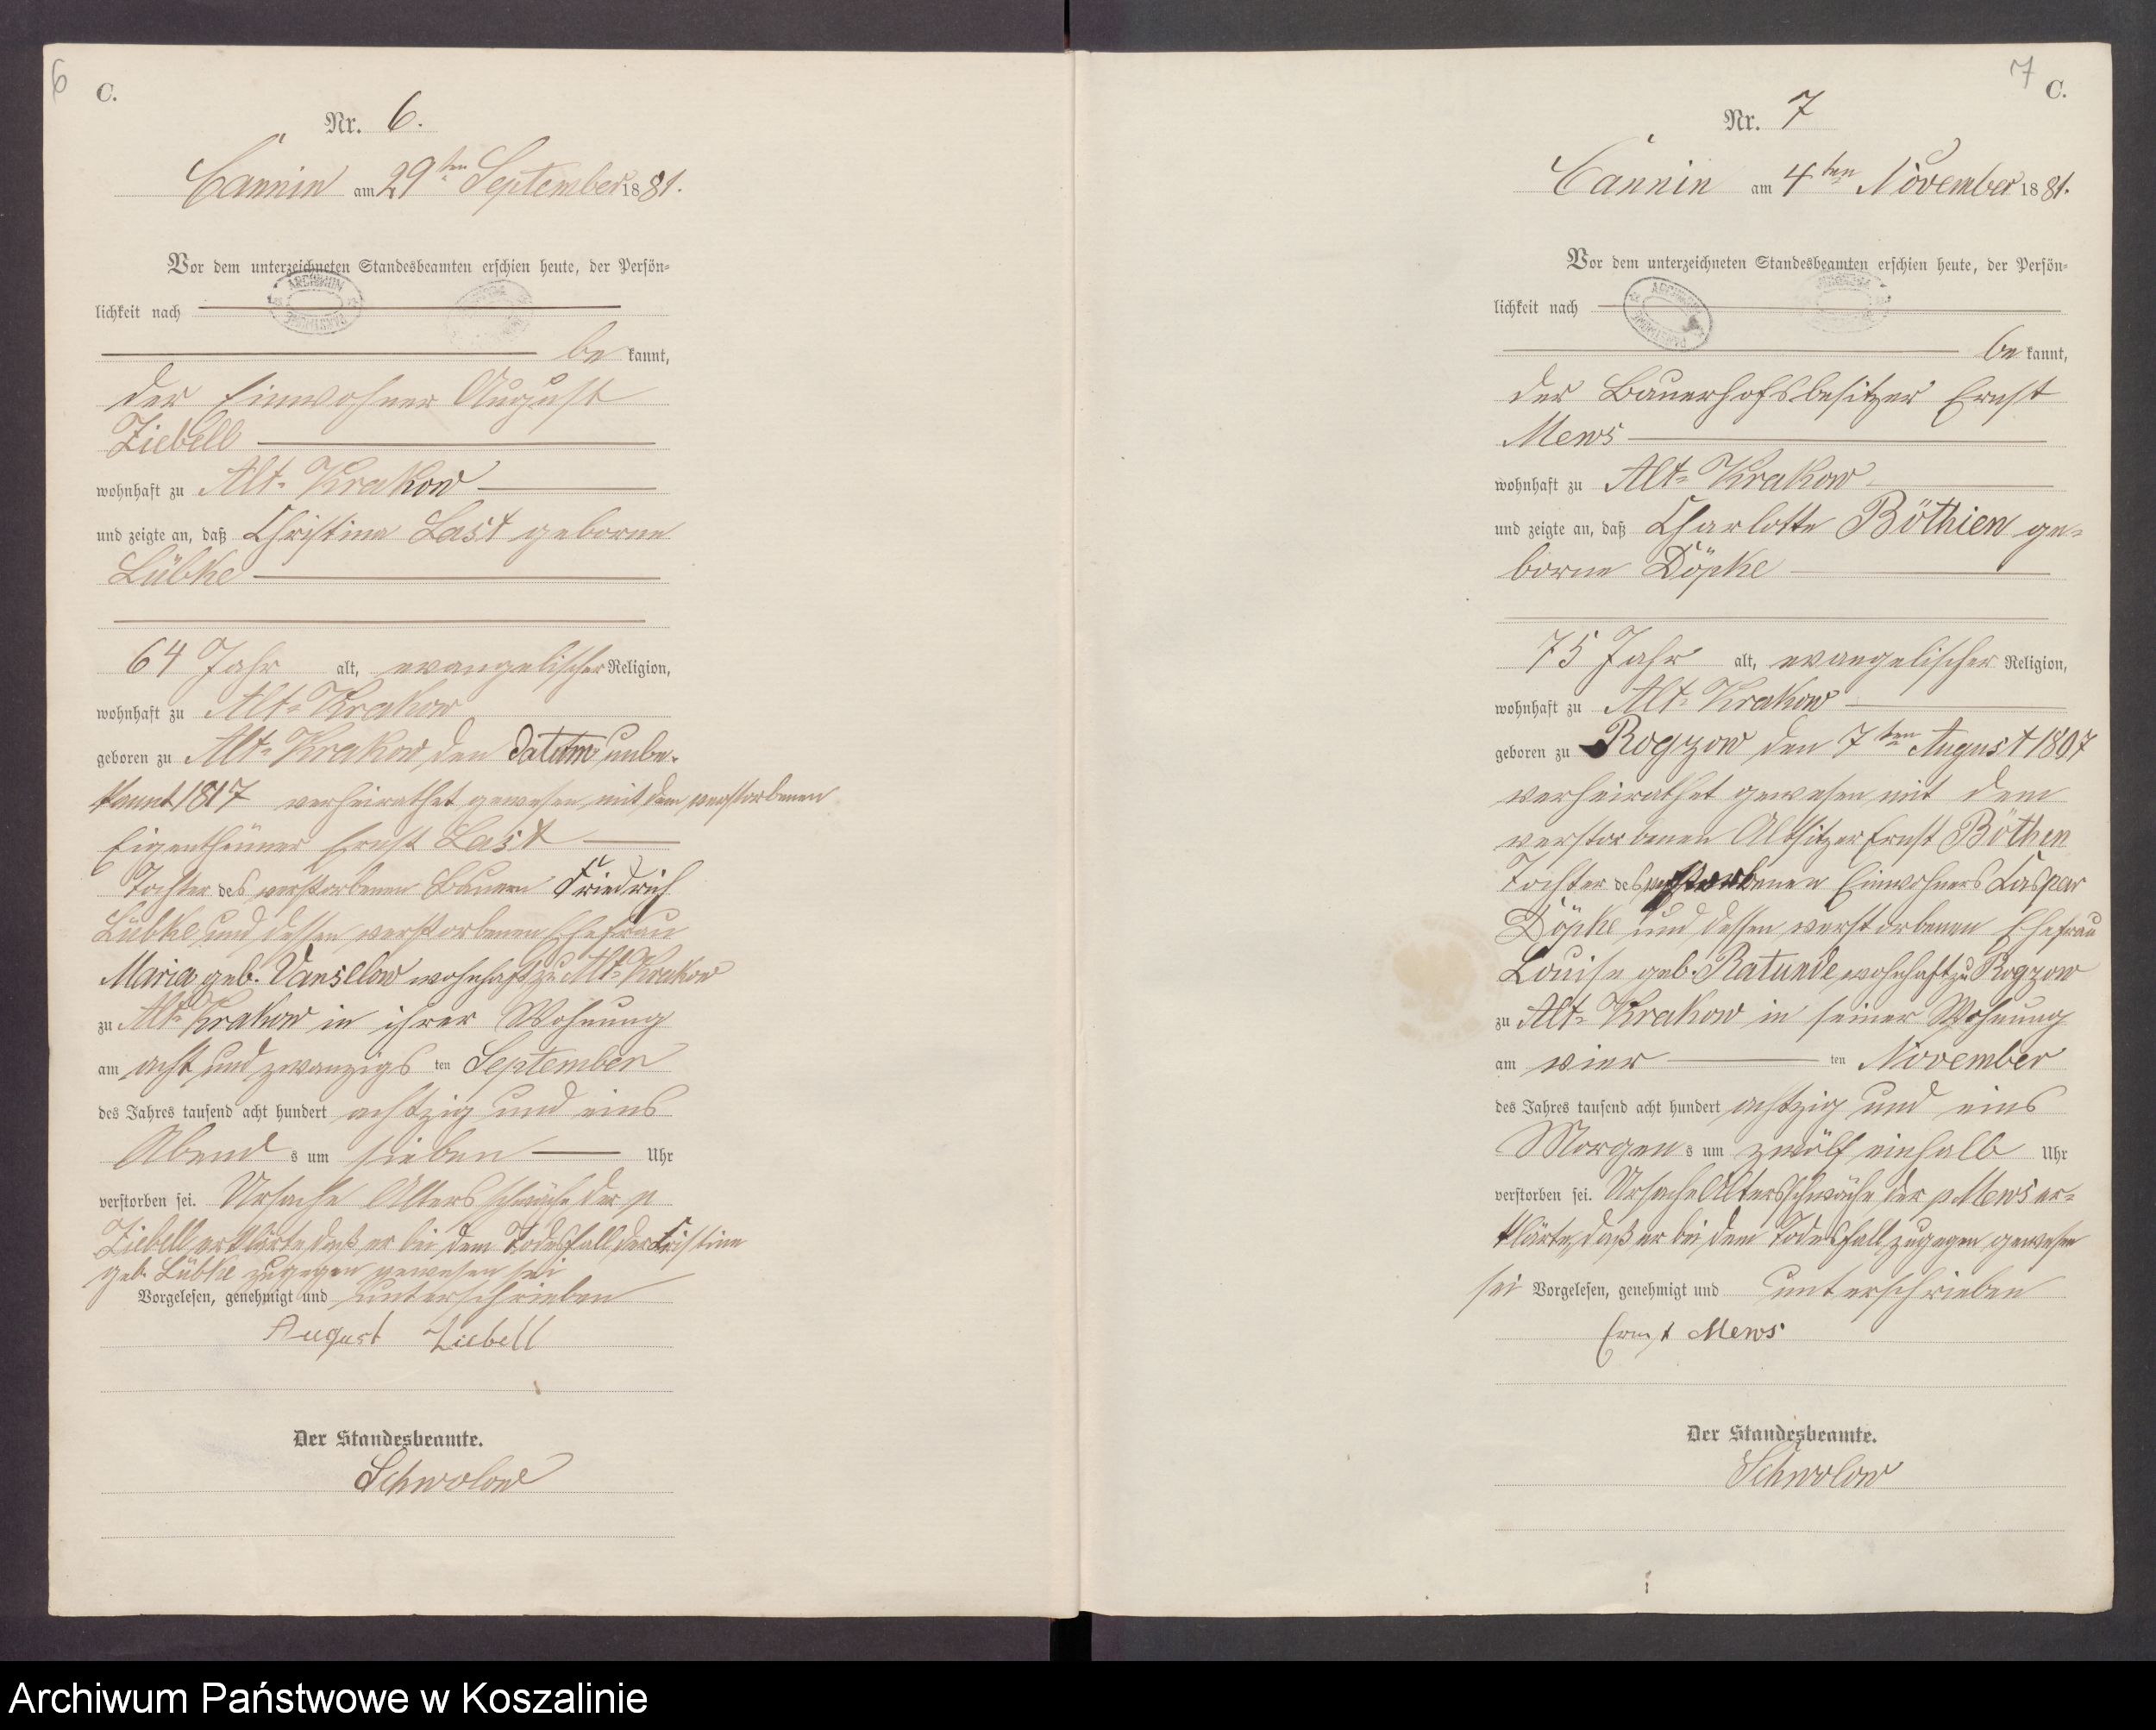 6
C.
Nr. 6.
Cannin am 29ten September 1881.
Vor dem unterzeichneten Standesbeamten erschien heute, der Persön=
lichkeit nach
be kannt,
der Einwohner August
Ziebell
wohnhaft zu Alt=Krakow
und zeigte an, daß Christina Last geborne
Lübke
64 Jahr alt, evangelischer Religion,
wohnhaft zu Alt=Krakow
geboren zu Alt=Krakow, den Datum unbe=
kannt 1817 verheirathet gewesen mit dem verstorbenen
Eigenthümer Ernst Last
Tochter des verstorbenen Bauern Friedrich
Lübke und dessen verstorbenen Ehefrau
Maria geb. Vanselow wohnhaft zu Alt=Krakow
zu Alt=Krakow in ihrer Wohnung
am acht und zwanzigs ten September
des Jahres tausend acht hundert achtzig und eins
Abend s um sieben Uhr
verstorben sei. Ursache Altersschwäche der p
Ziebell erklärte, daß er bei dem Todesfall der Kristine
geb. Lübke zugegen gewesen sei
Vorgelesen, genehmigt und unterschrieben
August Ziebell
Der Standesbeamte.
Schwolow
7
C.
Nr. 7
Cannin am 4ten November 1881.
Vor dem unterzeichneten Standesbeamten erschien heute, der Persön=
lichkeit nach
be kannt,
der Bauerhofsbesitzer Ernst
Mews
wohnhaft zu Alt=Krakow
und zeigte an, daß Charlotte Böthien ge=
borne Döpke
75 Jahr alt, evangelischer Religion,
wohnhaft zu Alt=Krakow
geboren zu Rogzow den 7ten August 1807
verheirathet gewesen mit dem
verstorbenen Altsitzer Ernst Böthen
Tochter des verstorbenen Einwohners Caspar
Döpke und dessen verstorbenen Ehefrau
Louise geb. Ratunde wohnhaft zu Rogzow
zu Alt=Krakow in seiner Wohnung
am vier ten November
des Jahres tausend acht hundert achtzig und eins
Morgen s um zwölf einhalb Uhr
verstorben sei. Ursache Altersschwäche der p Mews er=
klärte, daß er bei dem Todesfall zugegen gewesen
sei Vorgelesen, genehmigt und unterschrieben
Ernst Mews
Der Standesbeamte.
Schwolow
Archiwum Państwowe w Koszalinie